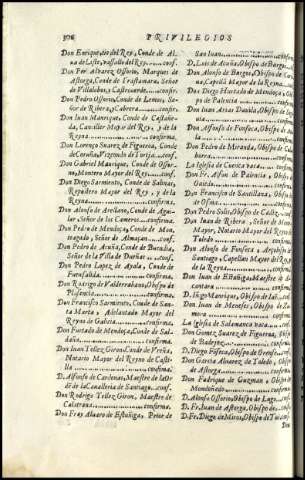 302 PRIVILEGIOS
Don Enrique, tio del Rey, Conde de Al-
ua de Liste, vassallo del Rey. conf.
Don Per Aluarez Ossorio, Marques de
Astorga, Conde de Trastamara, Señor
de Villalobos, y Castrouerde. conf.
Don Pedro Ossorio, Conde de Lemos, Se-
ñor de Ribera, y Cabrera. conf.
Don Iuan Manrique, Conde de Castañe-
da, Canciller Mayor del Rey, y de la
Reyna. confirma.
Don Lorenço Suarez de Figueroa, Conde
de Coruña, Vizconde de Torija. conf.
Don Gabriel Manrique, Conde de Osor-
no, Montero Mayor del Rey.
Don Diego Sarmiento, Conde de Salinas,
Repostero Mayor del Rey, y de la
Reyna. confirma.
Don Alonso de Arellano, Conde de Agui-
lar, Señor de los Cameros. confirma.
Don Pedro de Mendoça, Conde de Mon-
teagudo, Señor de Almaçan. conf.
Don Pedro de Acuña, Conde de Buendia,
Señor de la Villa de Dueñas. conf.
Don Pedro Lopez de Ayala, Conde de
Fuensalida. confirma.
Don Rodrigo de Valderrabano, Obispo de
Plasencia. confirma.
Don Francisco Sarmiento, Conde de San-
ta Marta, Adelantado Mayor del
Reyno de Galicia. confirma.
Don Furtado de Mendoça, Conde de Sal-
daña. confirma.
Don Iuan Tellez Giron, Conde de Vreña,
Notario Mayor del Reyno de Casti-
lla. confirma.
D. Alfonso de Cardenas, Maestre de la Or-
den de la Caualleria de Santiago. conf.
Don Rodrigo Tellez Giron, Maestre de
Calatraua. confirma.
Don Fray Aluaro de Estuñiga, Prior de
San Iuan.
D. Luis de Acuña, Obispo de Burgos
Don Alonso de Burgos, Obispo de
Capellã Mayor de la Reyna
Don Diego Hurtado de Mendoça, Obis-
po de Palencia
Don Iuan Arias Dauila, Obispo de
Don Alfonso de Fonseca, Obispo de
Don Pedro de Miranda, Obispo
confirma.
La Iglesia de Cuenca vaca. conf.
Don Fr. Alfon de Palencia, Obispo
Don Francisco de Santillana, Obispo
de Osma
Don Pedro Solis, Obispo de Cadiz
Don Iuan de Ribera, Señor de
Mayor, Notario Mayor del Reyno
de Toledo
Don Alonso de Fonseca, Arçobispo de
Santiago, Capellan Mayor del Rey
la Reyna
Don Iuan de Estuñiga, Maestre de Al-
cantara
D. Iñigo Manrique, Obispo de Iaen
Don Iuan de Meneses, Obispo de
mora
La Iglesia de Salamanca vaca
Don Gomez Suarez de Figueroa, Obispo
de Badajoz
D. Diego
Don Garcia Aluarez de Toledo, Obispo
de Astorga
Don Fadrique de Guzman, Obispo
Mondoñedo
D. Alonso Ossorio, Obispo de Lugo
D. Fr. Iuan de Astorga, Obispo de
D. Fr. Diego de Muros, Obispo de Tui
Don